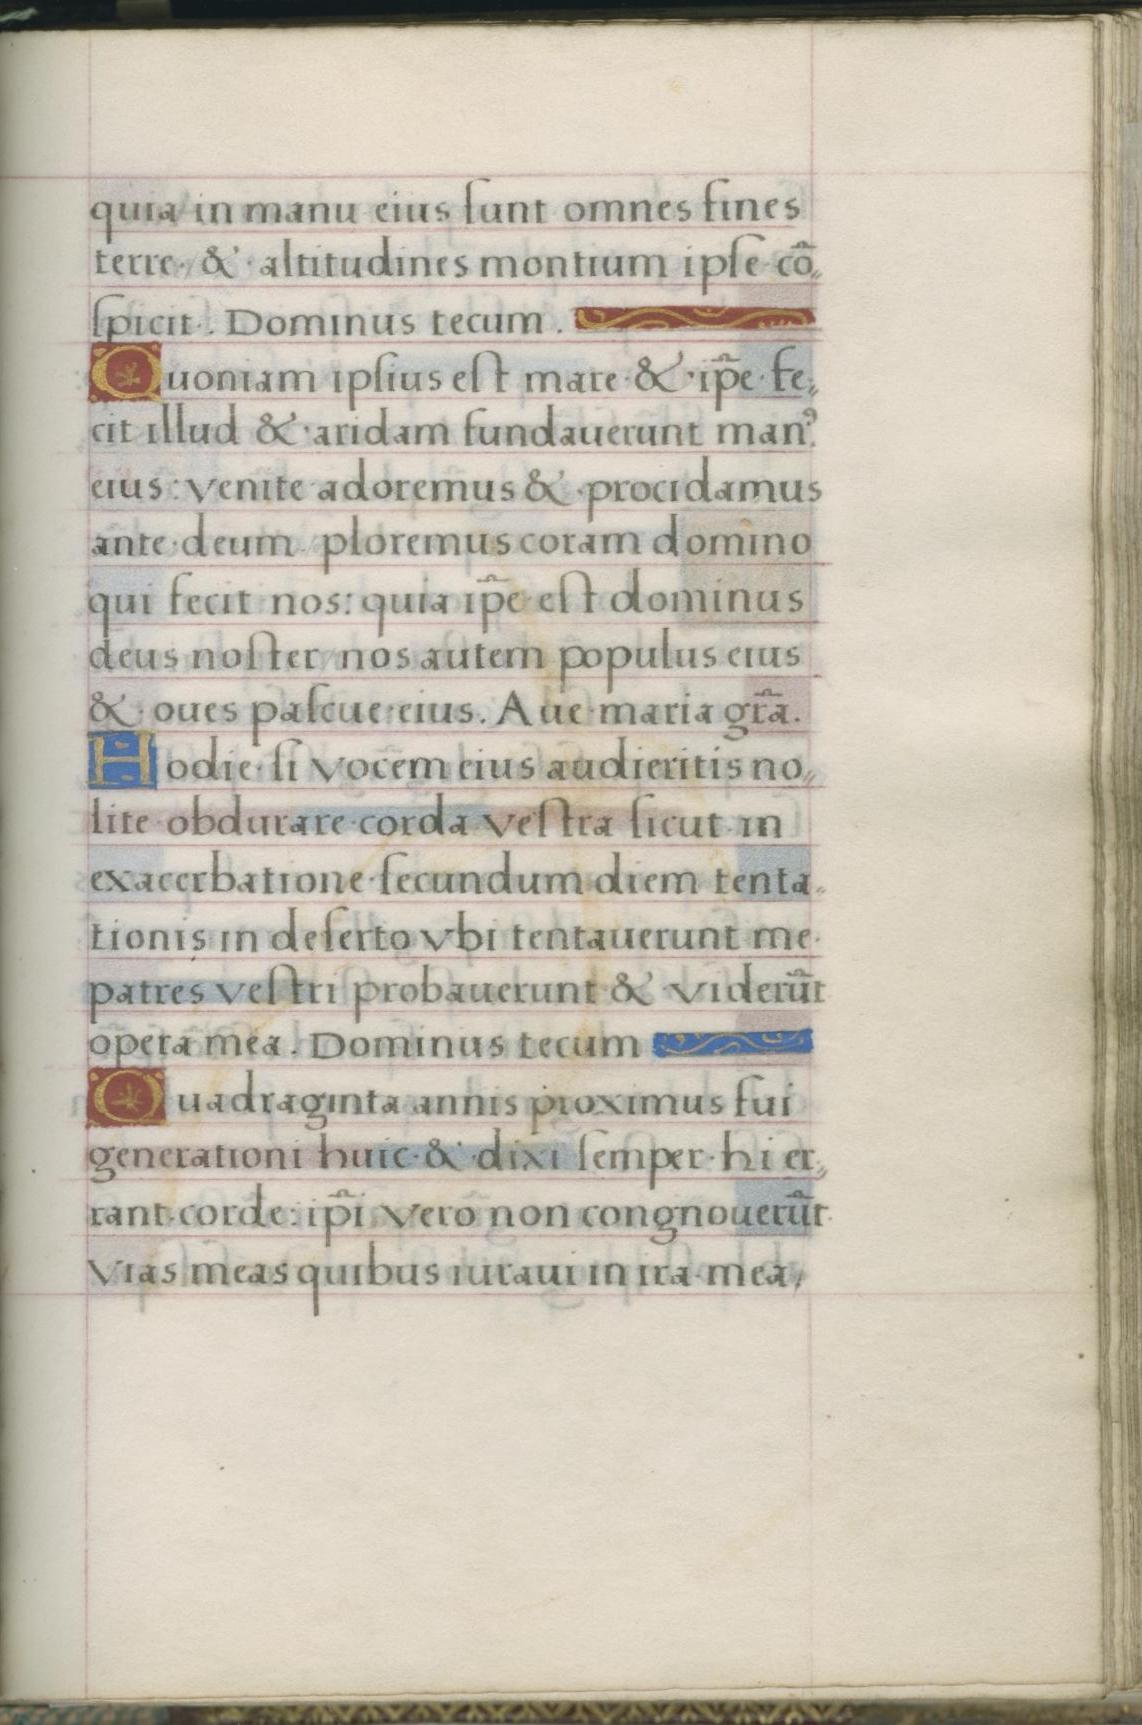 quia in manu eius ſunt omnes fines
terre. & altitudines montium ipſe cõ„
ſpicit. Dominus tecum.
Quoniam ipſius eſt mare & ip̃e fe„
cit illud & aridam fundauerunt manꝰ
eius: venite adoremus & procidamus
ante deum ploremus coram domino
qui fecit nos: quia ip̃e eſt dominus
deus noſter nos autem populus eius
& oues paſcue eius. Aue maria gr̃a.
Hodie ſi vocem eius audieritis no„
lite obdurare corda veſtra ſicut in
exacerbatione ſecundum diem tenta„
tionis in deſerto vbi tentauerunt me
patres veſtri probauerunt & viderũt
opera mea. Dominus tecum
Quadraginta annis proximus fui
generationi huic & dixi ſemper hi er„
rant corde: ip̃i vero non congnouerũt
vias meas quibus iuraui in ira mea,